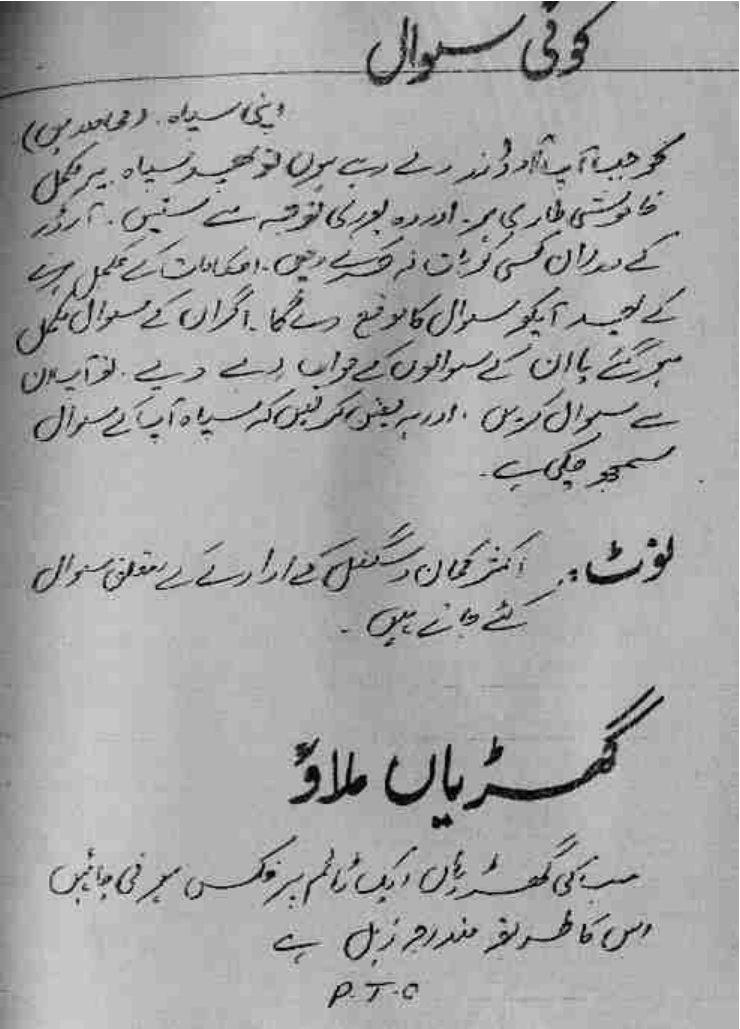 کوئی سوال
اپنی سپاہ. (مجاہدین)
کو جب آپ آرڈر دے رہے ہوں تو پھر سپاہ پر مکمل
خاموشی طاری ہو. اور وہ پوری توجہ سے سنیں. آرڈر
کے دوران کسی کو بات نہ کرنے دیں. احکامات کے مکمل ہونے
کے بعد آپکو سوال کا موقع دے گا. اگر ان کے سوال مکمل
ہو گئے یا ان کے سوالوں کے جواب دے دیے. تو آپ ان
سے سوال کریں. اور یہ یقین کر لیں کہ سپاہ آپ کے سوال
سمجھ چکی ہے.
نوٹ: اکثر کمان و سگنل کے ادارے کے متعلق سوال
کئے جاتے ہیں.
گھڑیاں ملاؤ
سب کی گھڑیاں ایک ٹائم پر فکس ہونی چاہئیں
اس کا طریقہ مندرجہ ذیل ہے
P.T.O